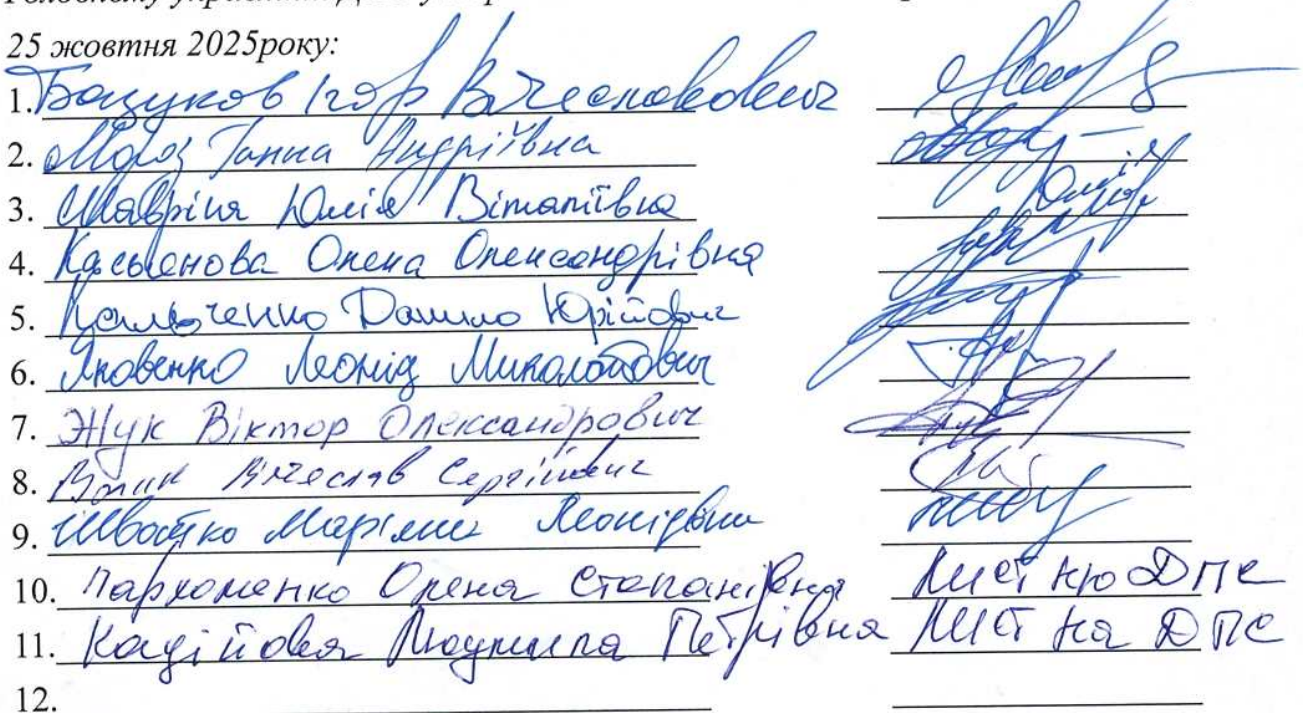 25 жовтня 2025року:
1. Бацуков Ігор Вячеславович
2. Мороз Ганна Андріївна
3. Шавріна Юлія Віталіївна
4. Касьєнова Олена Олександрівна
5. Данило Юрійович
6. Яковенко Леонід Миколайович
7. Жук Віктор Олександрович
8. Вячеслав Сергійович
9. Швайко Леонідівна
10. Пархоменко Олена Степанівна Лист ДПС
11. Кадійова Людмила Петрівна Лист на ДПС
12.